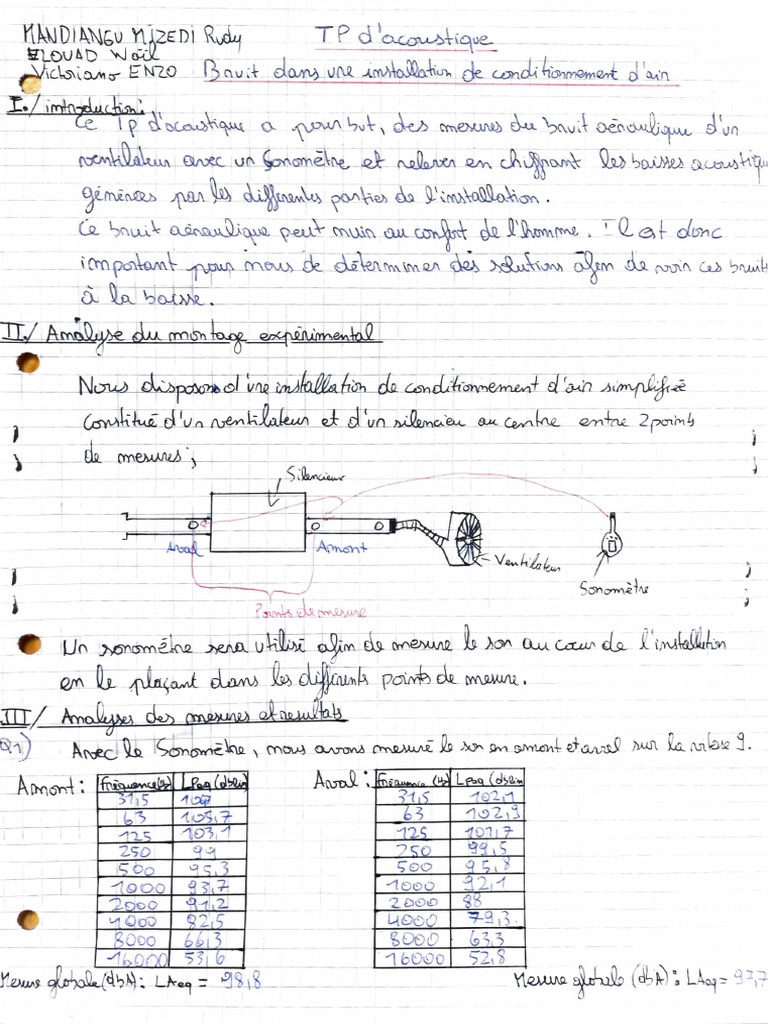 MANDIANGU MIZEDI Rudy
TP d'acoustique
ELOUAD Wäil
Victoriano ENZO
Bruit dans une installation de conditionnement d'air
I./ introduction:
Ce TP d'acoustique a pour but, des mesures du bruit aéraulique d'un
ventilateur avec un Sonomètre et relever en chiffrant les baisses acoustiqu
générées par les différentes parties de l'installation.
Ce bruit aéraulique peut nuin au confort de l'homme. Il est donc
important pour nous de déterminer des solutions afin de voir ces bruits
à la baisse.
II./ Analyse du montage expérimental
Nous disposons d'une installation de conditionnement d'air simplifiée
constitué d'un ventilateur et d'un silencieu au centre entre 2 points
de mesures;
Silencieux
Aval
Amont
Ventilateur
Sonomètre
Points de mesure
Un sonomètre sera utilisé afin de mesure le son au cœur de l'installation
en le plaçant dans les différents points de mesure.
III/ Analyses des mesures et resultats
Q1) Avec le Sonomètre, nous avons mesuré le son en amont et aval sur la vitesse 9.
Amont:
Fréquence (Hz) LPeq (dblin
31,5
63
125 103,1
250 99
500 95,3
1000 93,7
2000 91,2
4000 82,5
8000 66,3
16000 53,6
Mesure globale (dbA): LAeq = 98,8
Aval:
Fréquence (Hz) LPeq (dblin
31,5 102,1
63 102,9
125 101,7
250 99,5
500 95,8
1000 92,1
2000 88
4000 79,3
8000 63,3
16000 52,8
Mesure globale (dbA): LAeq = 97,7